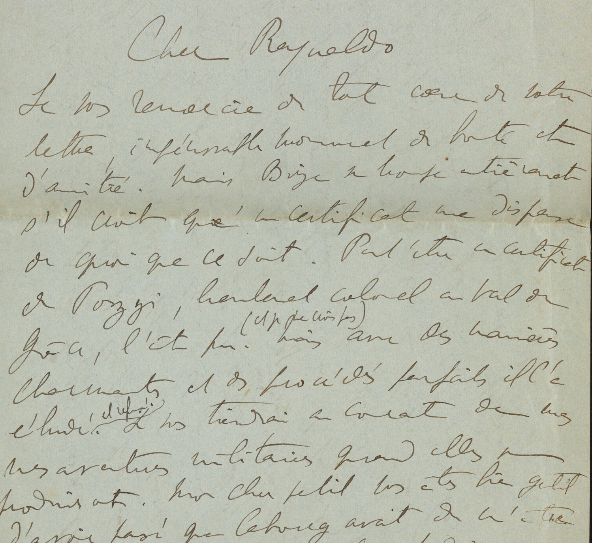 Cher Reynaldo
Je vos remercie de tout cœur de votre
lettre, impérissable monument de bonté et
d'amitié. Mais Bize se trompe entièrement
s'il croit que un certificat me dispense
de quoi que ce soit. Peut'être un certificat
de Pozzi, lieutenant colonel au Val de
Grâce, l'eût pu. (et je ne crois pas) Mais avec des manières
charmantes et des procédés parfaits il l'a
éludé. et refusé. Je vos tiendrai au courant de mes
mesaventures militaires quand elles se
produiront. Mon cher petit vos êtes bien gentil
d'avoir pensé que Cabourg avait dû m'être